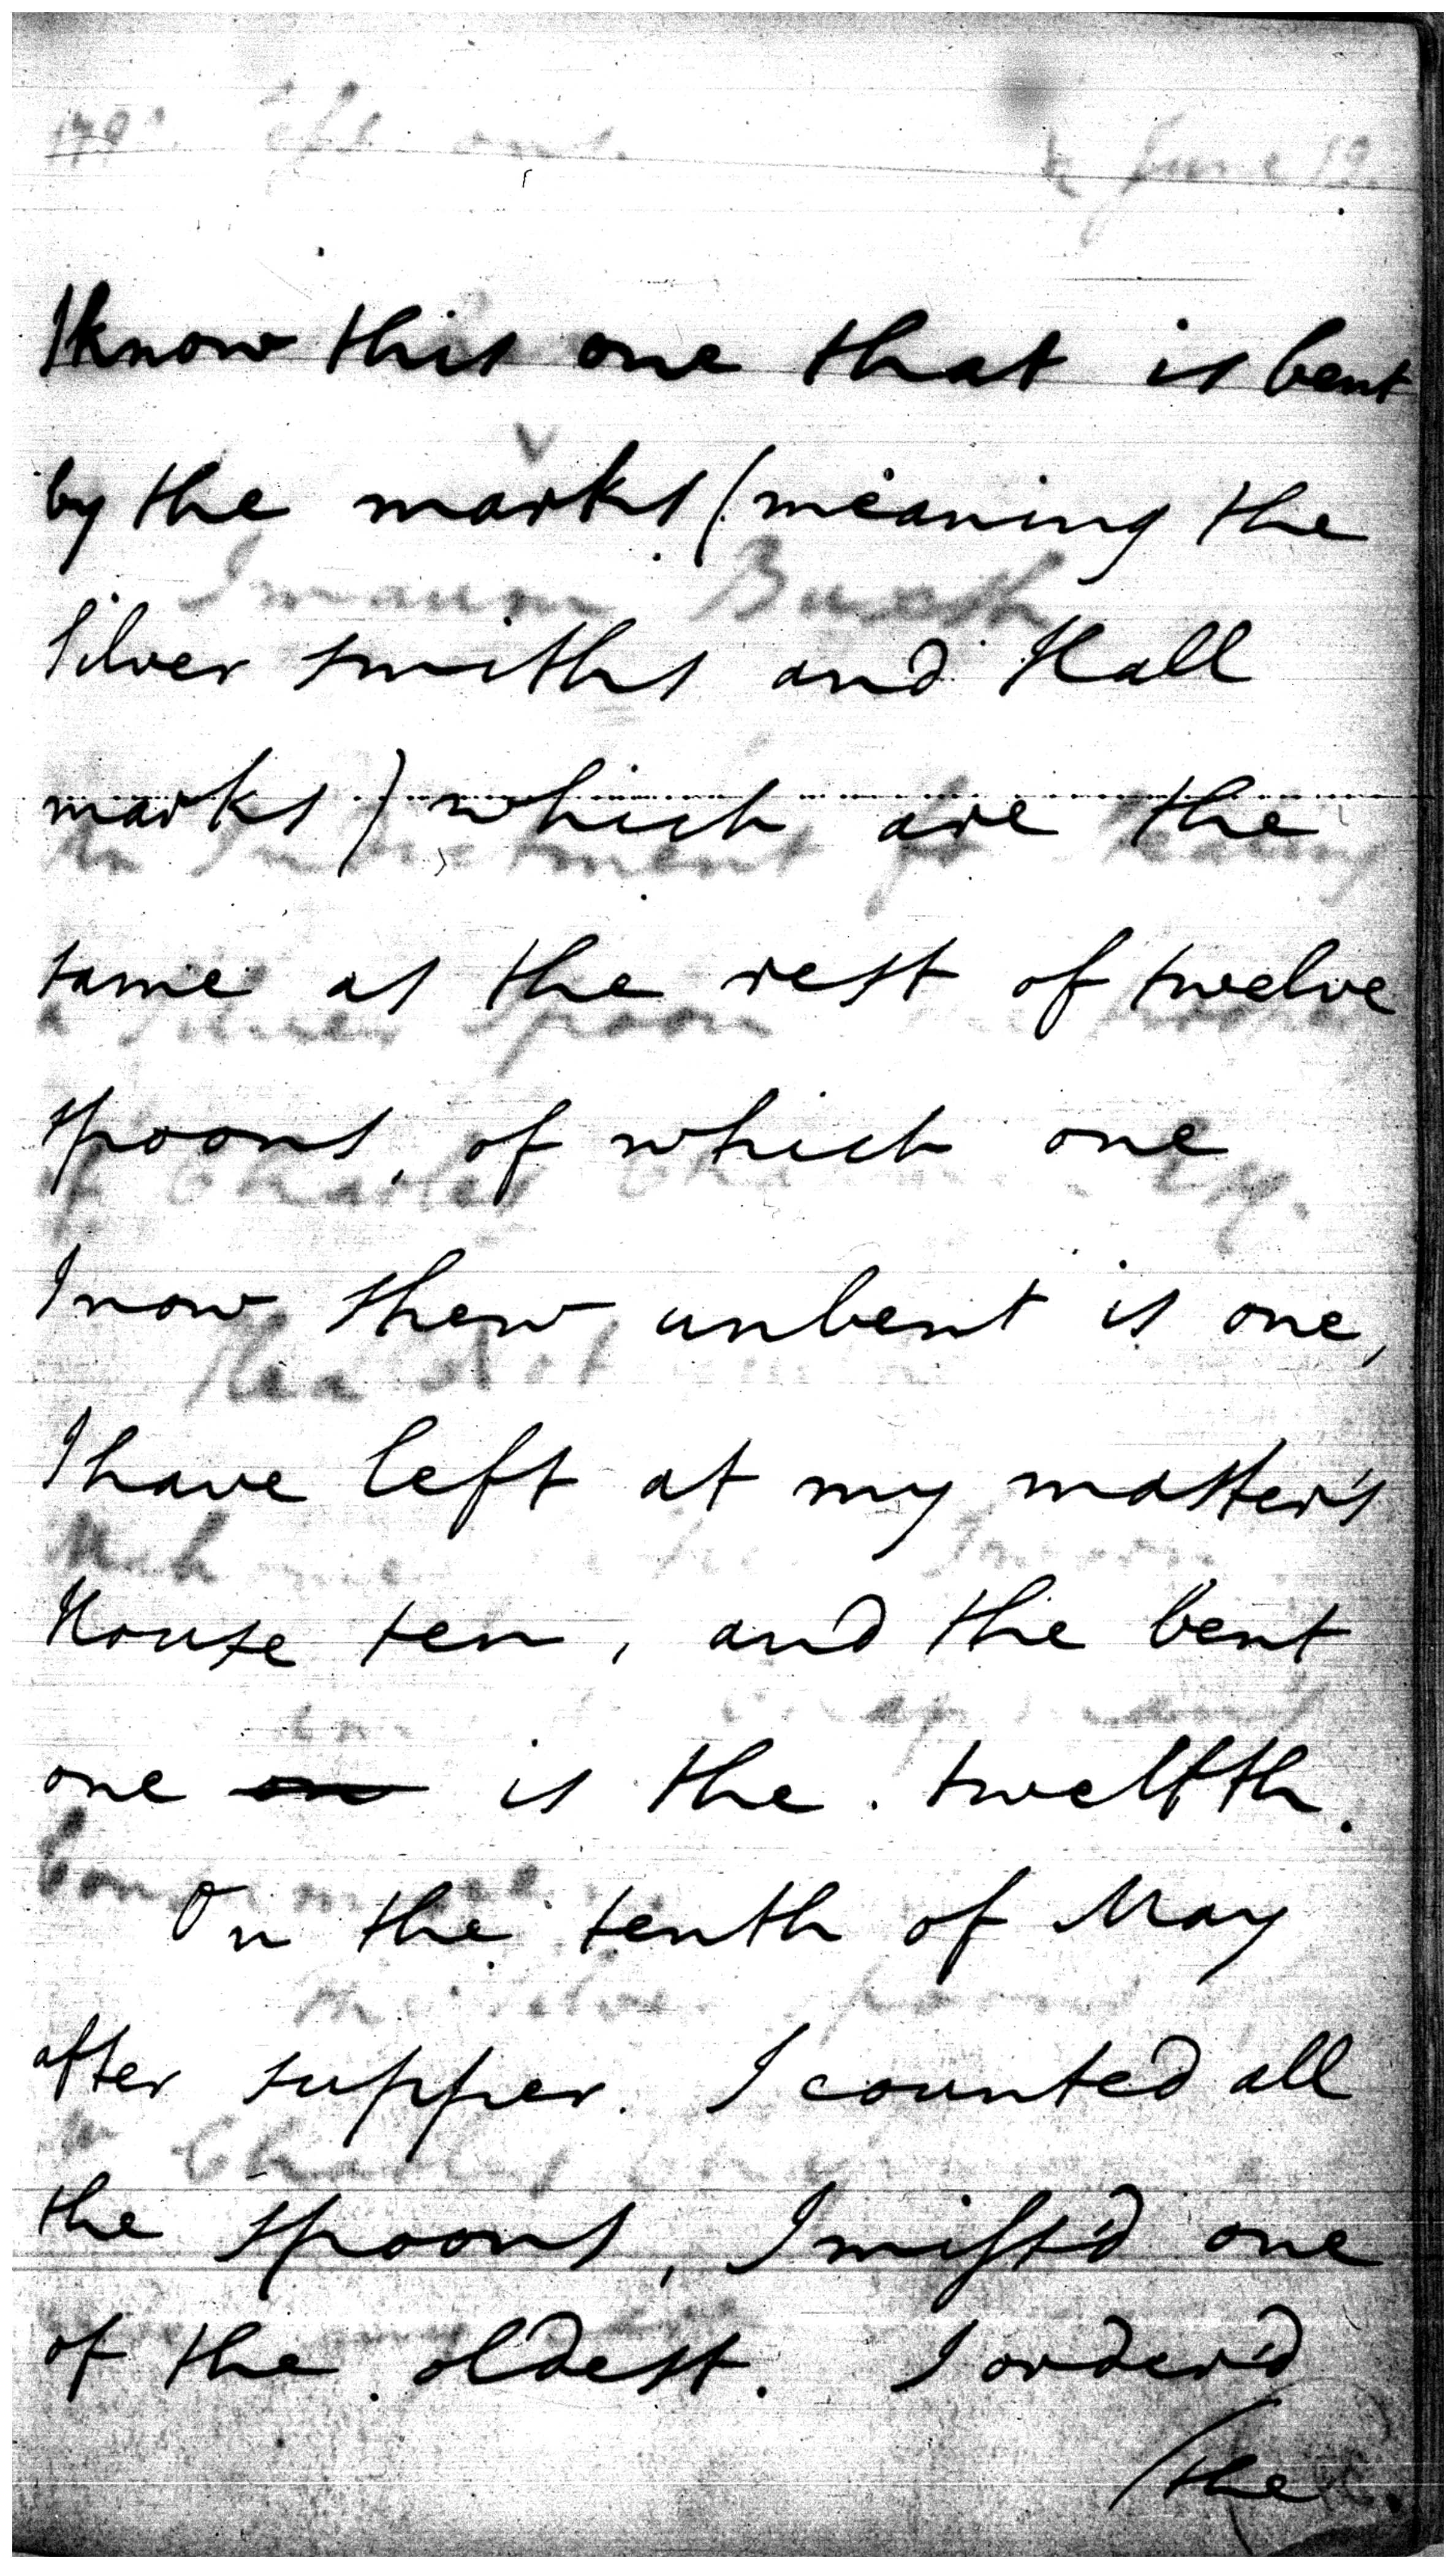 I know this one that is bent
by the marks (meaning the
Silver smiths and Hall
marks) which are the
same as the rest of twelve
spoons, of which one
I now shew unbent is one,
I have left at my master's
House ten, and the bent
one is the twelfth.
On the tenth of May
after supper. I counted all
the spoons, I miss'd one
of the oldest. I order'd
(the